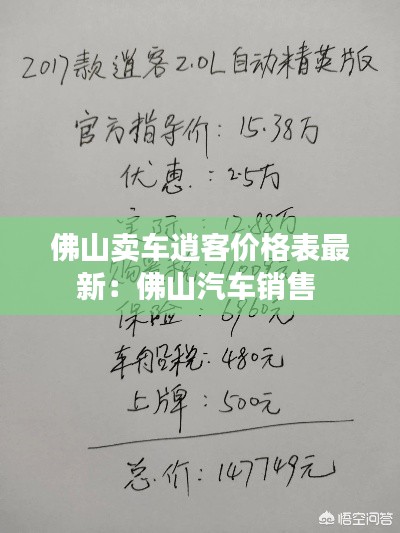 2017款逍客2.0L自动精英版
官方指导价:15.38万
优惠:2.5万
实际:12.88万
佛山卖车逍客价格表最
新：佛山汽车销售
保险:6960元
车船税:480元
上牌:500元
总价:147749元
悟空问答